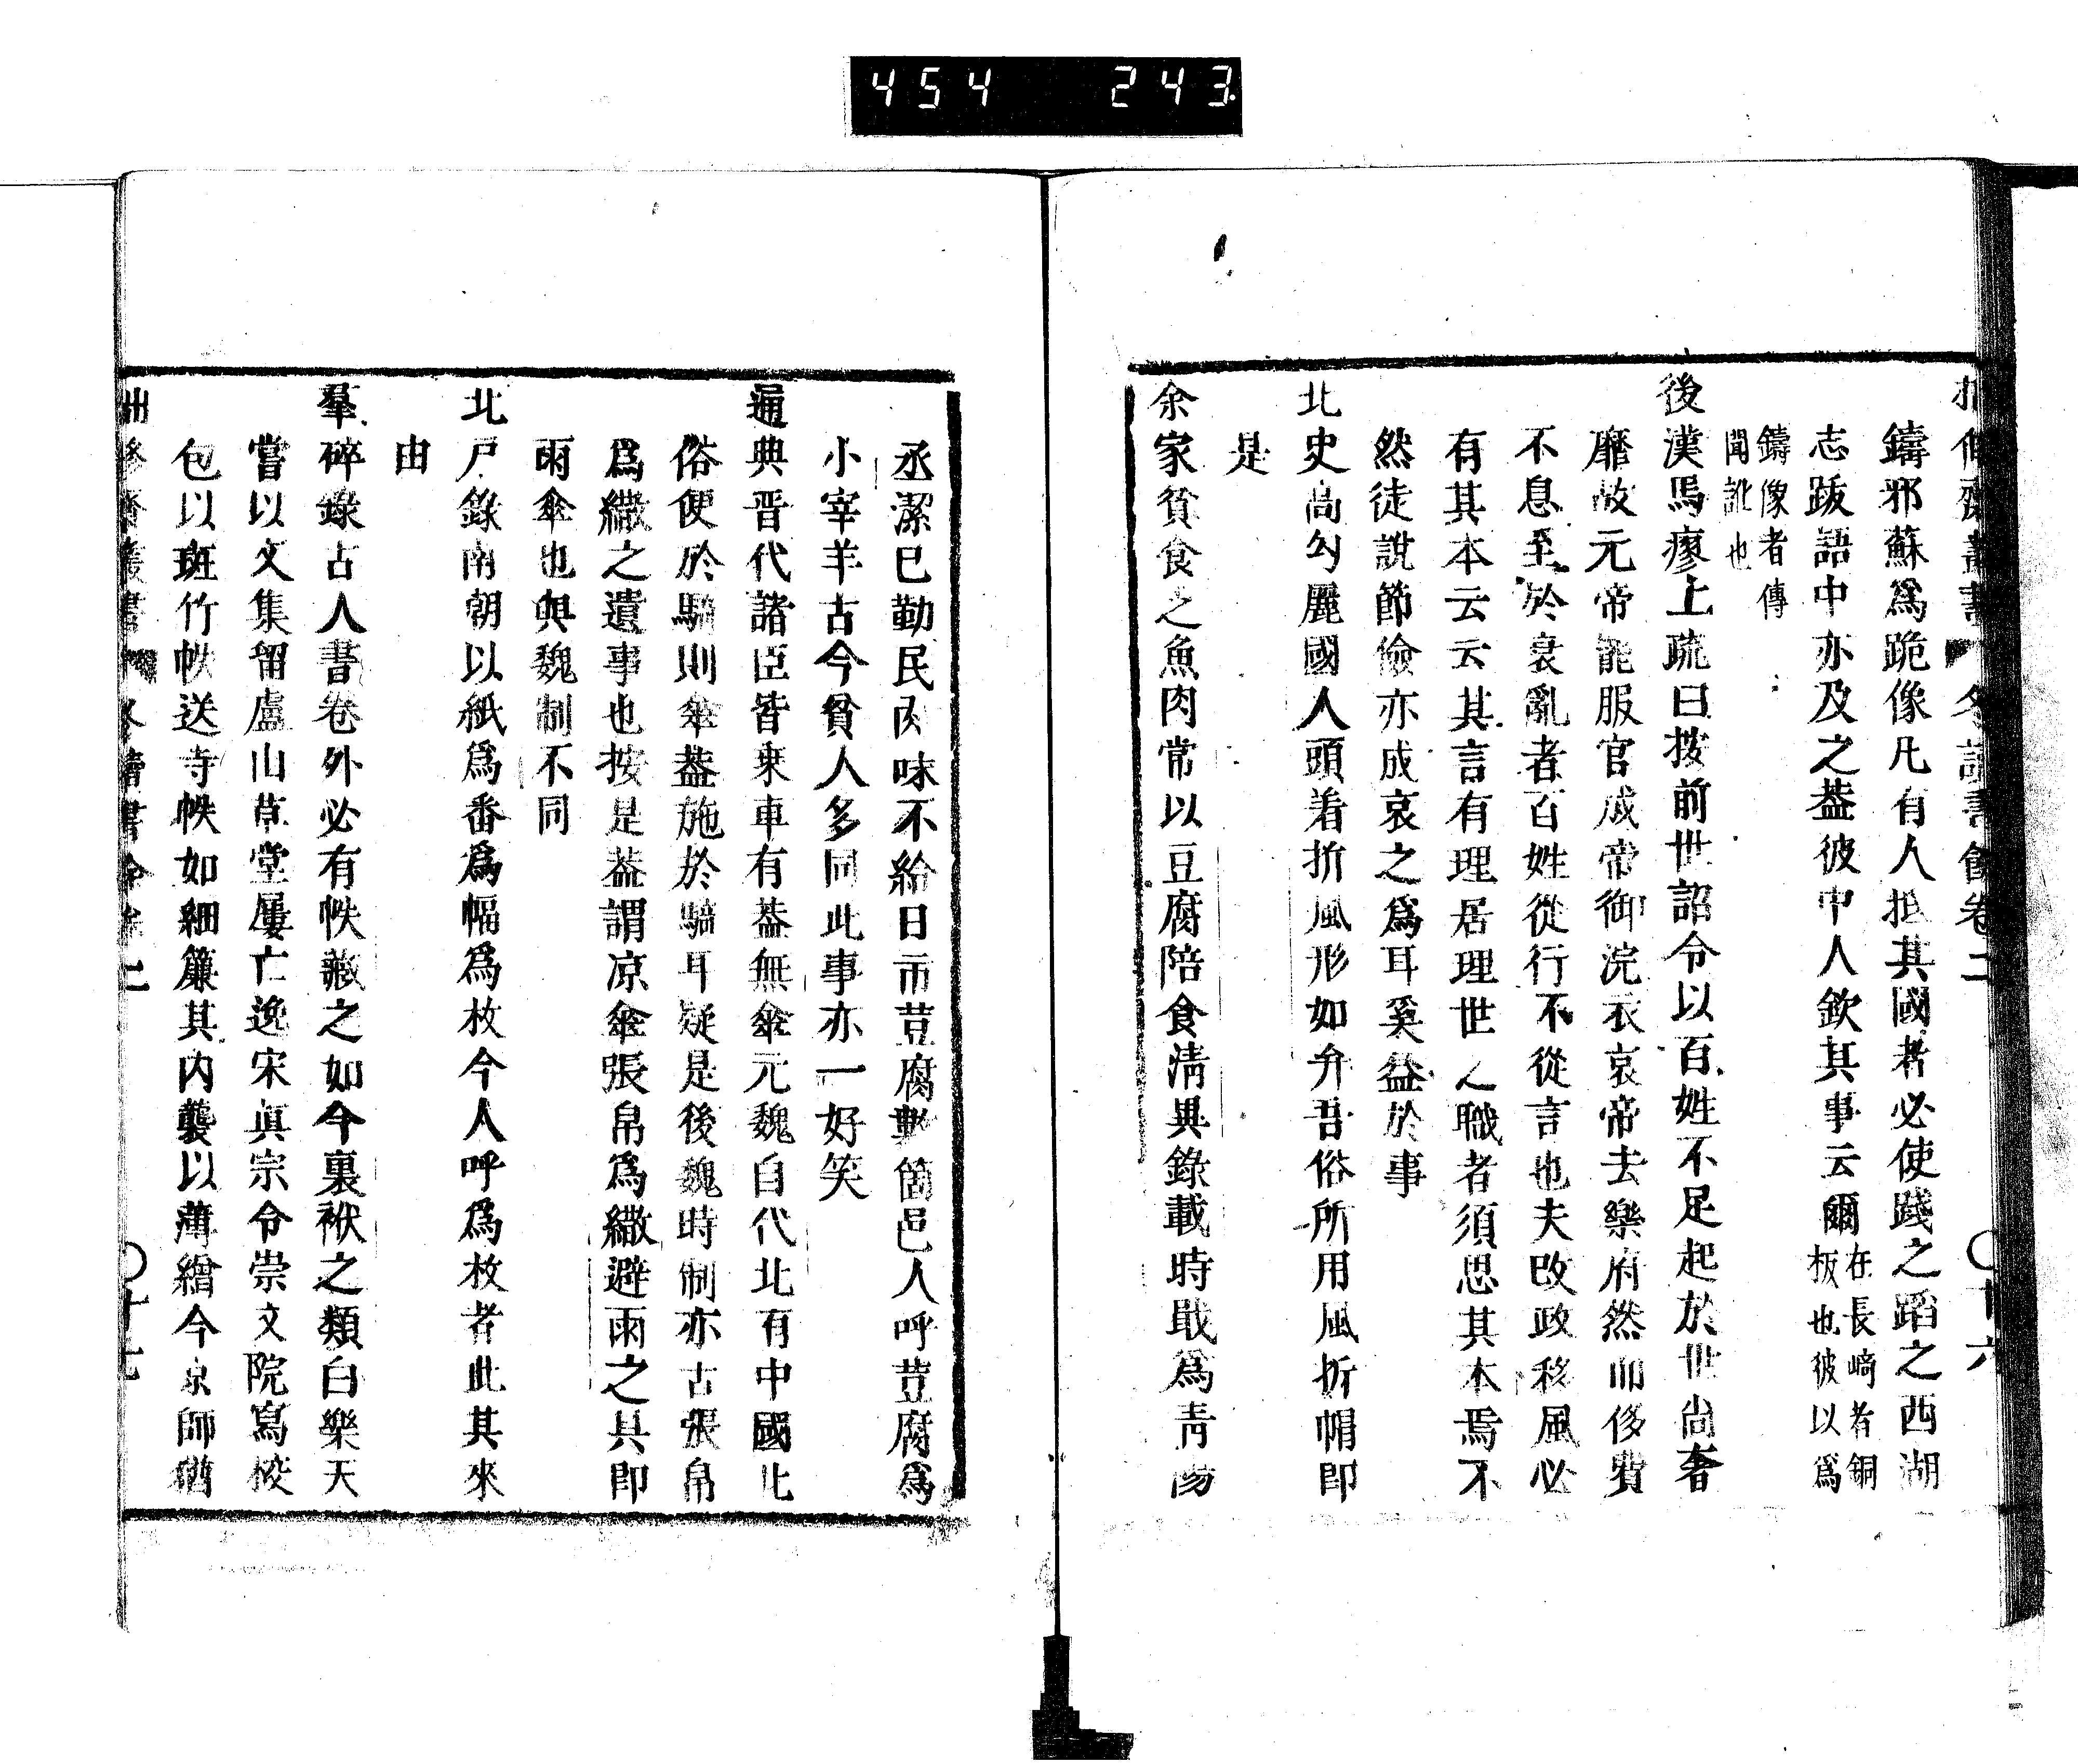 454 243.
拙脩齋叢書 冬讀書餘卷二 〇十六
鑄邪蘇爲跪像凡有人抵其國者必使踐之蹈之西湖
志跋語中亦及之葢彼中人欽其事云爾在長崎者銅板也彼以爲
鑄像者傳聞訛也
後漢馬廖上疏曰按前世詔令以百姓不足起於世尚奢
靡故元帝能服官成帝御浣衣哀帝去樂府然而侈費
不息至於衰亂者百姓從行不從言也夫改政移風必
有其本云云其言有理居理世之職者須思其本焉不
然徒說節儉亦成哀之爲耳奚益於事
北史高勾麗國人頭着折風形如弁吾俗所用風折帽卽
是
余家貧食之魚肉常以豆腐陪食淸異錄載時戢爲靑陽
丞潔巳勤民肉味不給日市荳腐數箇邑人呼荳腐爲
小宰羊古今貧人多同此事亦一好笑
通典晋代諸臣皆乗車有葢無傘元魏自代北有中國北
俗便於騎則傘葢施於騎耳疑是後魏時制亦古張帛
爲繖之遺事也按是葢謂凉傘張帛爲繖避雨之具卽
雨傘也與魏制不同
北戸錄南朝以紙爲番爲幅爲枚今人呼爲枚者此其來
由
羣碎錄古人書卷外必有帙藏之如今裏袱之類白樂天
嘗以文集留廬山草堂屢亡逸宋眞宗令崇文院寫校
包以斑竹帙送寺帙如細簾其内襲以薄繒今京師猶
拙脩齋叢書 冬讀書餘卷二 〇十七